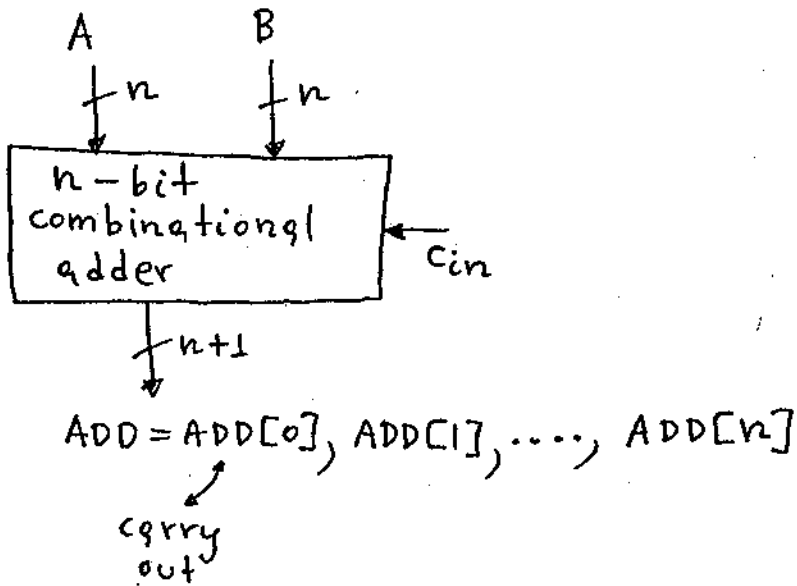 A B
n n
n-bit
combinational
adder
cin
n+1
ADD = ADD[0], ADD[1], ...., ADD[n]
carry
out